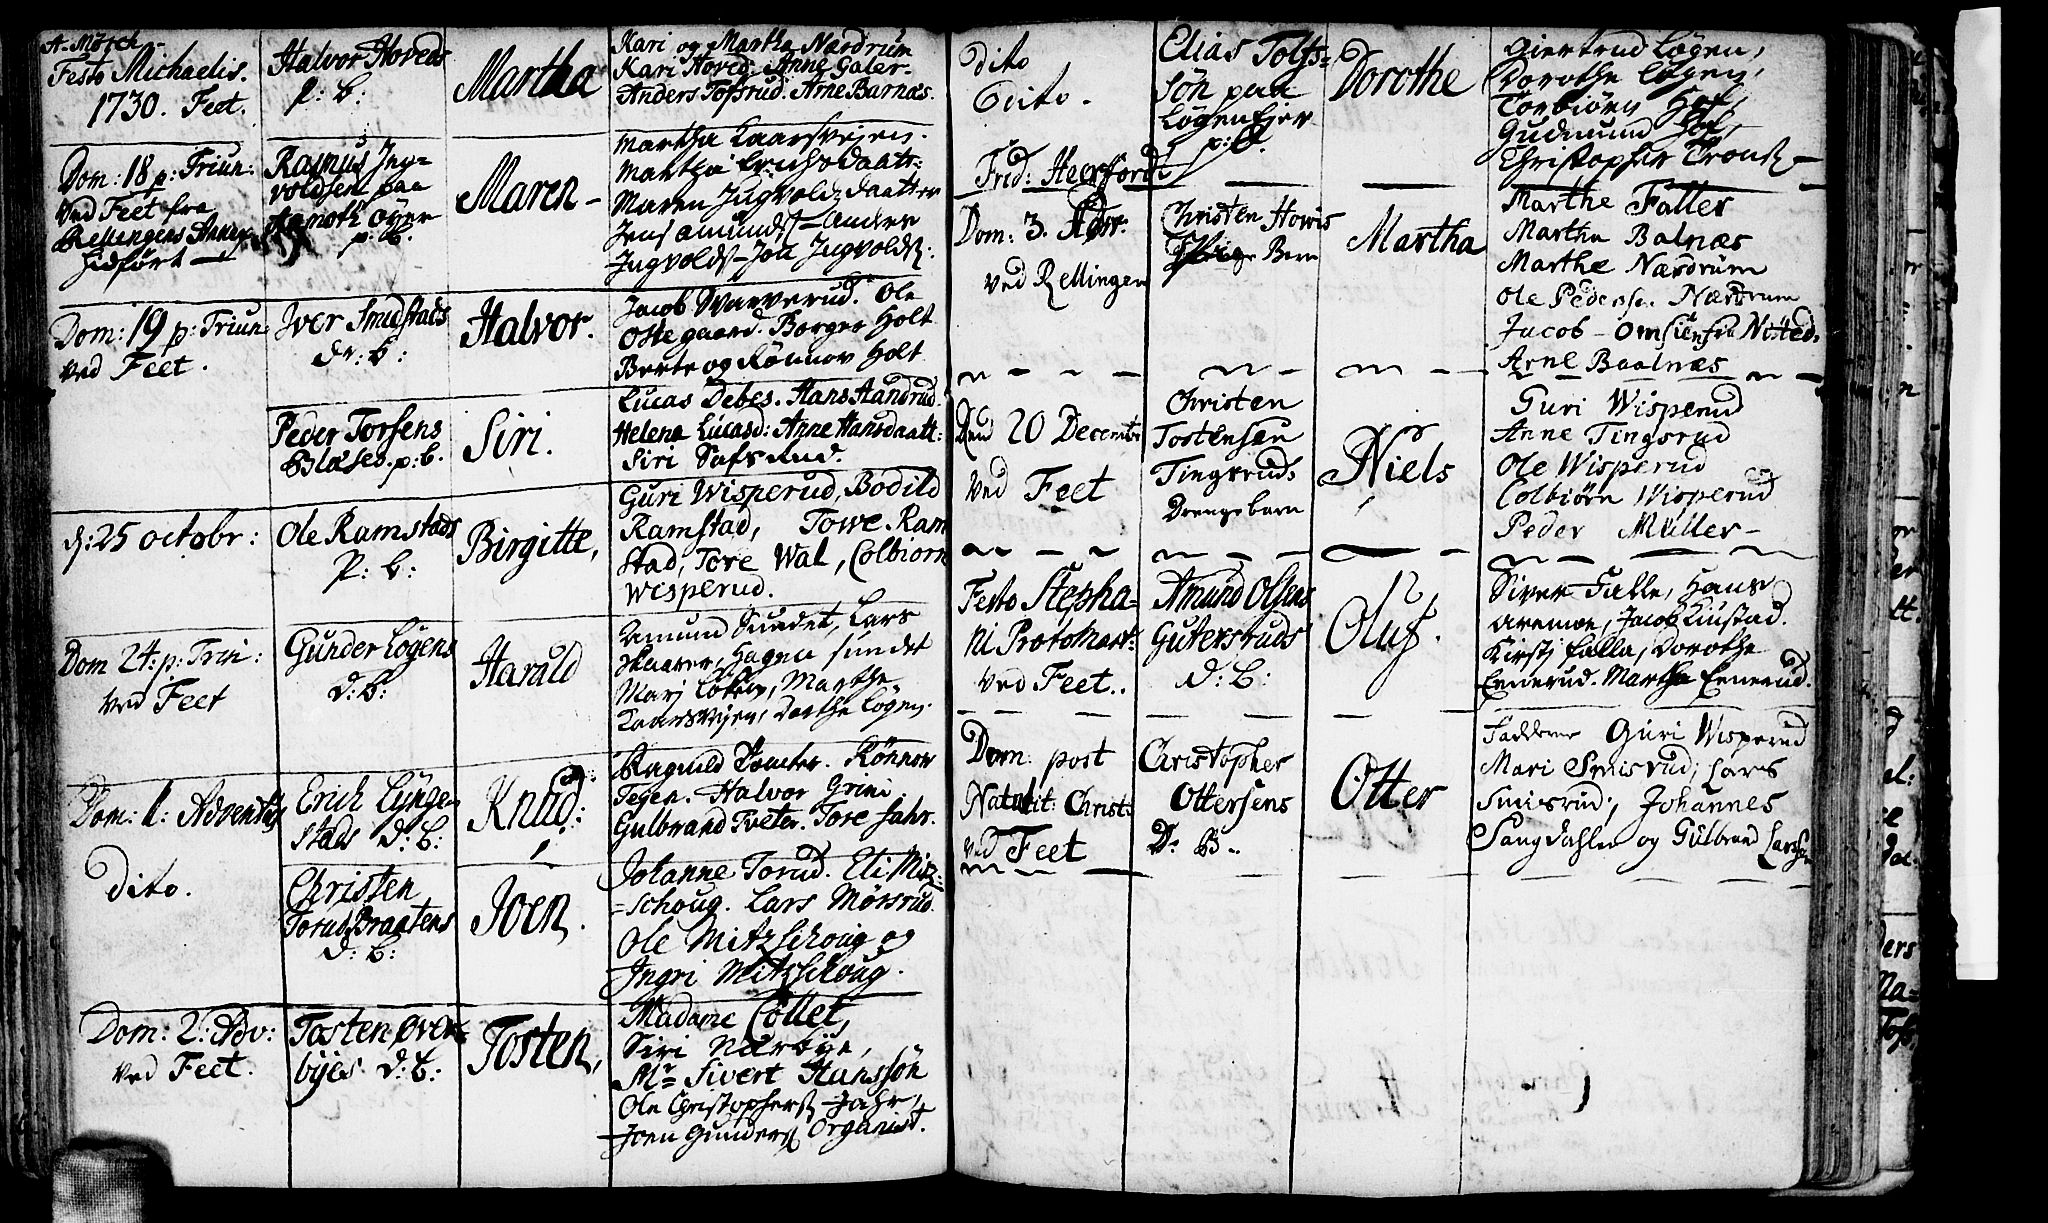 A. Mørch.
Festo Michaelis.
1730. Feet.
Halvor Hoveds
P: b:
Martha
Kari og Martha Nærdrum
Kari Hoved. Anne Galer.
Anders Tofsrud. Arne Barnæs.
Dom: 18 p: Triun:
ved Feet fra
Rellingens Annex
hidført
Rasmus Ing=
voldsen paa
øyer
p: b.
Maren
Martha Kaarsveyen.
Martha Erichsdaatt:
Maren Ingvoldzdaatter
Jens Amunds Anders
Ingvolds Jon Ingvoldz.
Dom: 19 p: Triun:
ved Feet.
Iver Smidstads
dr: b:
Halvor.
Jacob Warverud. Ole
Ostegaard. Borger Holt
Berte og Rønnov Holt
Peder Torsens
Blases. p: b.
Siri.
Lucas Debes. Hans Handrud
Helena Lucasd: Anne Hansdaatt:
Siri
d: 25 octobr:
Ole Ramstads
P: b:
Birgitte,
Guri Wisperud, Bodild
Ramstad, Towe Ram
stad, Tore Wal, Colbiorn
Wisperud.
Dom 24: p: Trin:
ved Feet
Gunder Løgens
d: b:
Harald
Amund Sundet, Lars
Skaarer, Hagen Sundet
Mari Løken, Marthe
Kaarsvyen, Dorthe Løgen.
Dom: 1: Adventus
Erich Lynge
stads d: b:
Knud:
Ragnild Tomter. Rønnow
Tegen. Halvor Grini.
Gulbrand Tveter. Tore Jahr.
Dito.
Christen
Torud Braatens
d: b:
Joen.
Johanne Torud. Eli Mitz
=schoug. Lars Mørsrud.
Ole Mitzschoug og
Ingri Mitzschoug.
Dom: 2: Adv:
ved Feet.
Tosten Over
byes d: b:
Tosten,
Madame Collet,
Siri Nærbye,
Mr Sivert Hanssøn
Ole Christophers Jahr,
Joen Gunders Organist.
dito
Ecito.
Elias Tolfs=
søn paa
Løgen Eier
p: b.
Dorothe
Giertrud Løgen,
Dorothe Løgen,
Torbiørn Hof,
Gudmund Hof,
Christopher Tronss
Frid: Heerfordt
Dom: 3. Adv:
ved Rellingen
Christen Howis
Pige Barn
Martha
Marthe Faller
Martha Balnæs
Marthe Nærdrum
Ole Pederse. Nærdrum
Jacob
Arne Baalnæs
Den 20 Decembr
ved Feet
Christen
Tostensen
Tingsruds
Drengebarn
Niels
Guri Wisperud
Anne Tingsrud
Ole Wisperud
Colbiørn Wisperud
Peder Müller
Festo Stepha=
ni Protomart:
ved Feet.
Amund Olsens
Gutersruds
d: b:
Oluf.
Siver Falle, Hans
Aremoe, Jacob Kiustad.
Kirsti Falla, Dorothe
Eenerud. Martha Eenerud.
Dom: post
Natalit: Christi
ved Feet
Christopher
Ottersens
D: B.
Otter
Faddere Guri Wisperud
Mari Smisrud, Lars
Smisrud, Johannes
Sangdahlen og Gulbrand Larssen